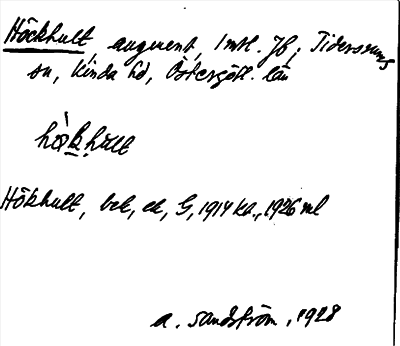 Höckhult, augment, 1 mtl. Jb, Tidersrums
sn, Kinda hd, Östergötl. län
hö̀khult
Hökhult, bet, ek, G, 1914 ka., 1926 ml
A. Sandström, 1928